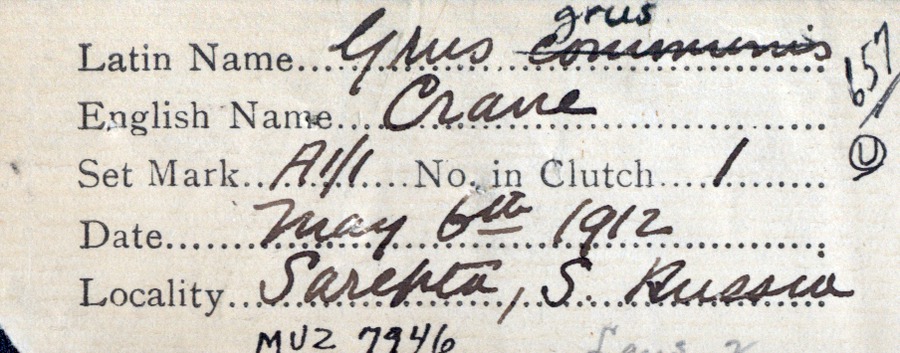 grus
Latin Name....Grus communis
English Name....Crane
657/
Set Mark...A1/1....No. in Clutch....1........
U
Date......May 6th 1912
Locality...Sarepta, S. Russia
MVZ 7946